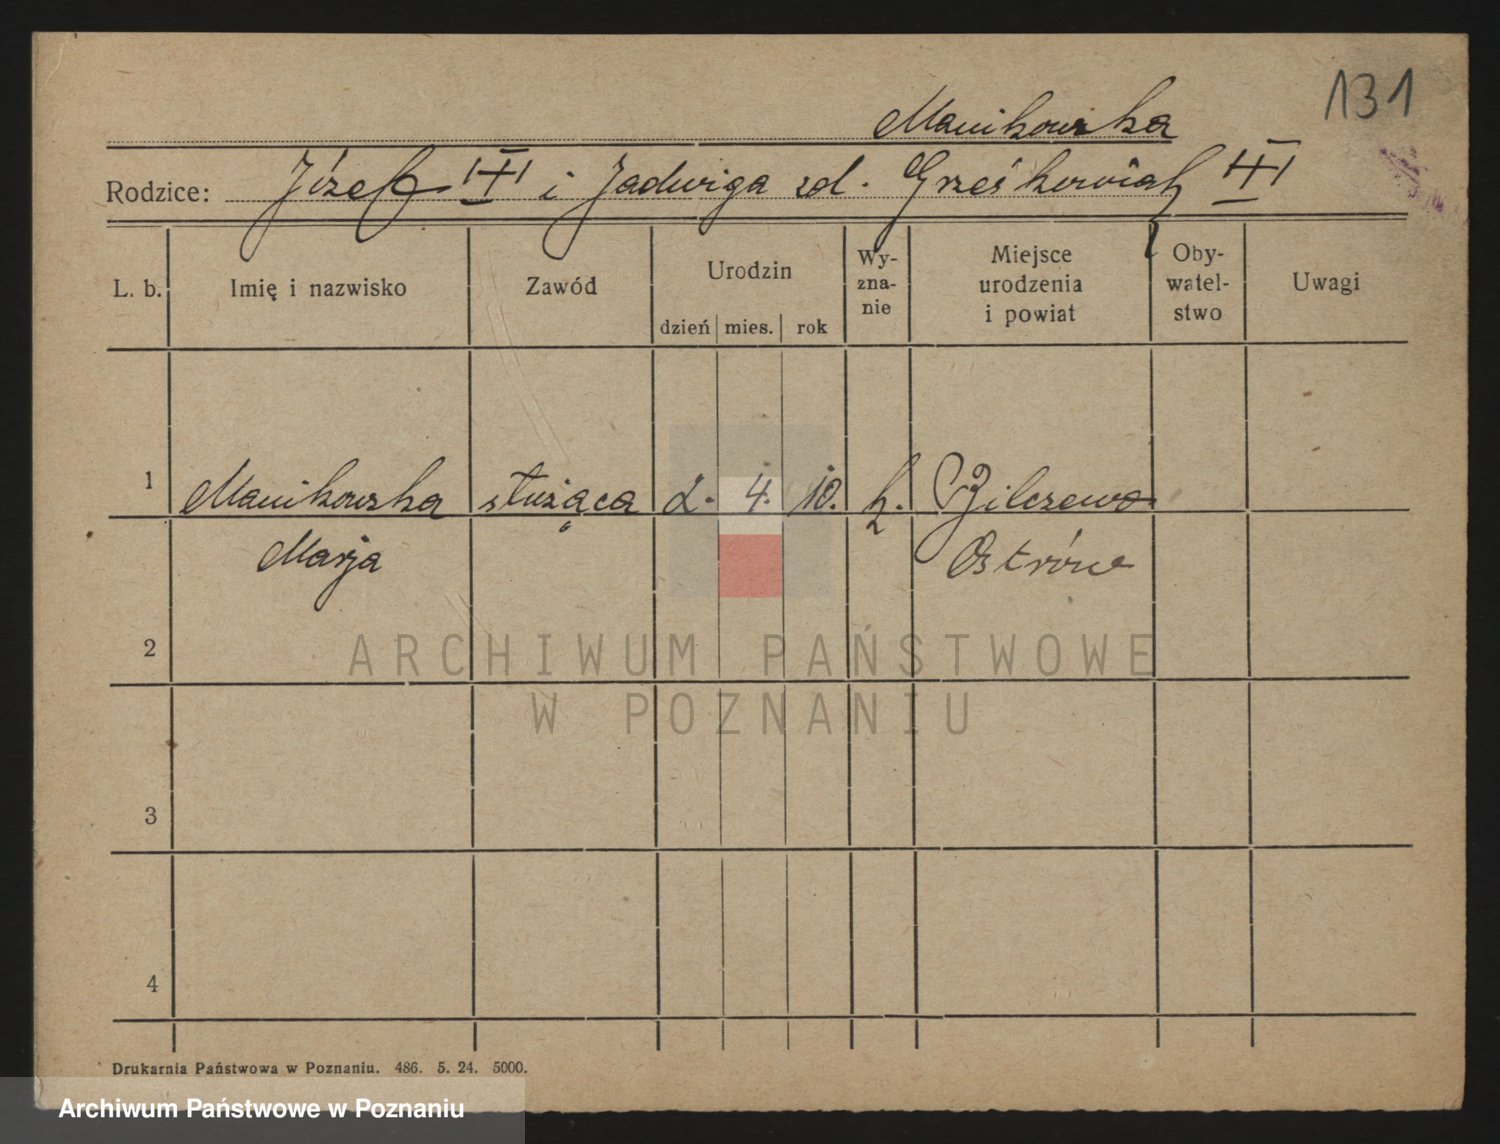 131
Manikowska
Rodzice: Józef i Jadwiga zd. Grześkowiak
L. b. Imię i nazwisko Zawód Urodzin dzień mies. rok Wy-zna-nie Miejsce urodzenia i powiat Oby-watel-stwo Uwagi
1 Manikowska służąca 2. 4. 10. k. Bilczewo
Marja Ostrów
2
ARCHIWUM PAŃSTWOWE
W POZNANIU
3
4
Drukarnia Państwowa w Poznaniu. 486. 5. 24. 5000.
Archiwum Państwowe w Poznaniu